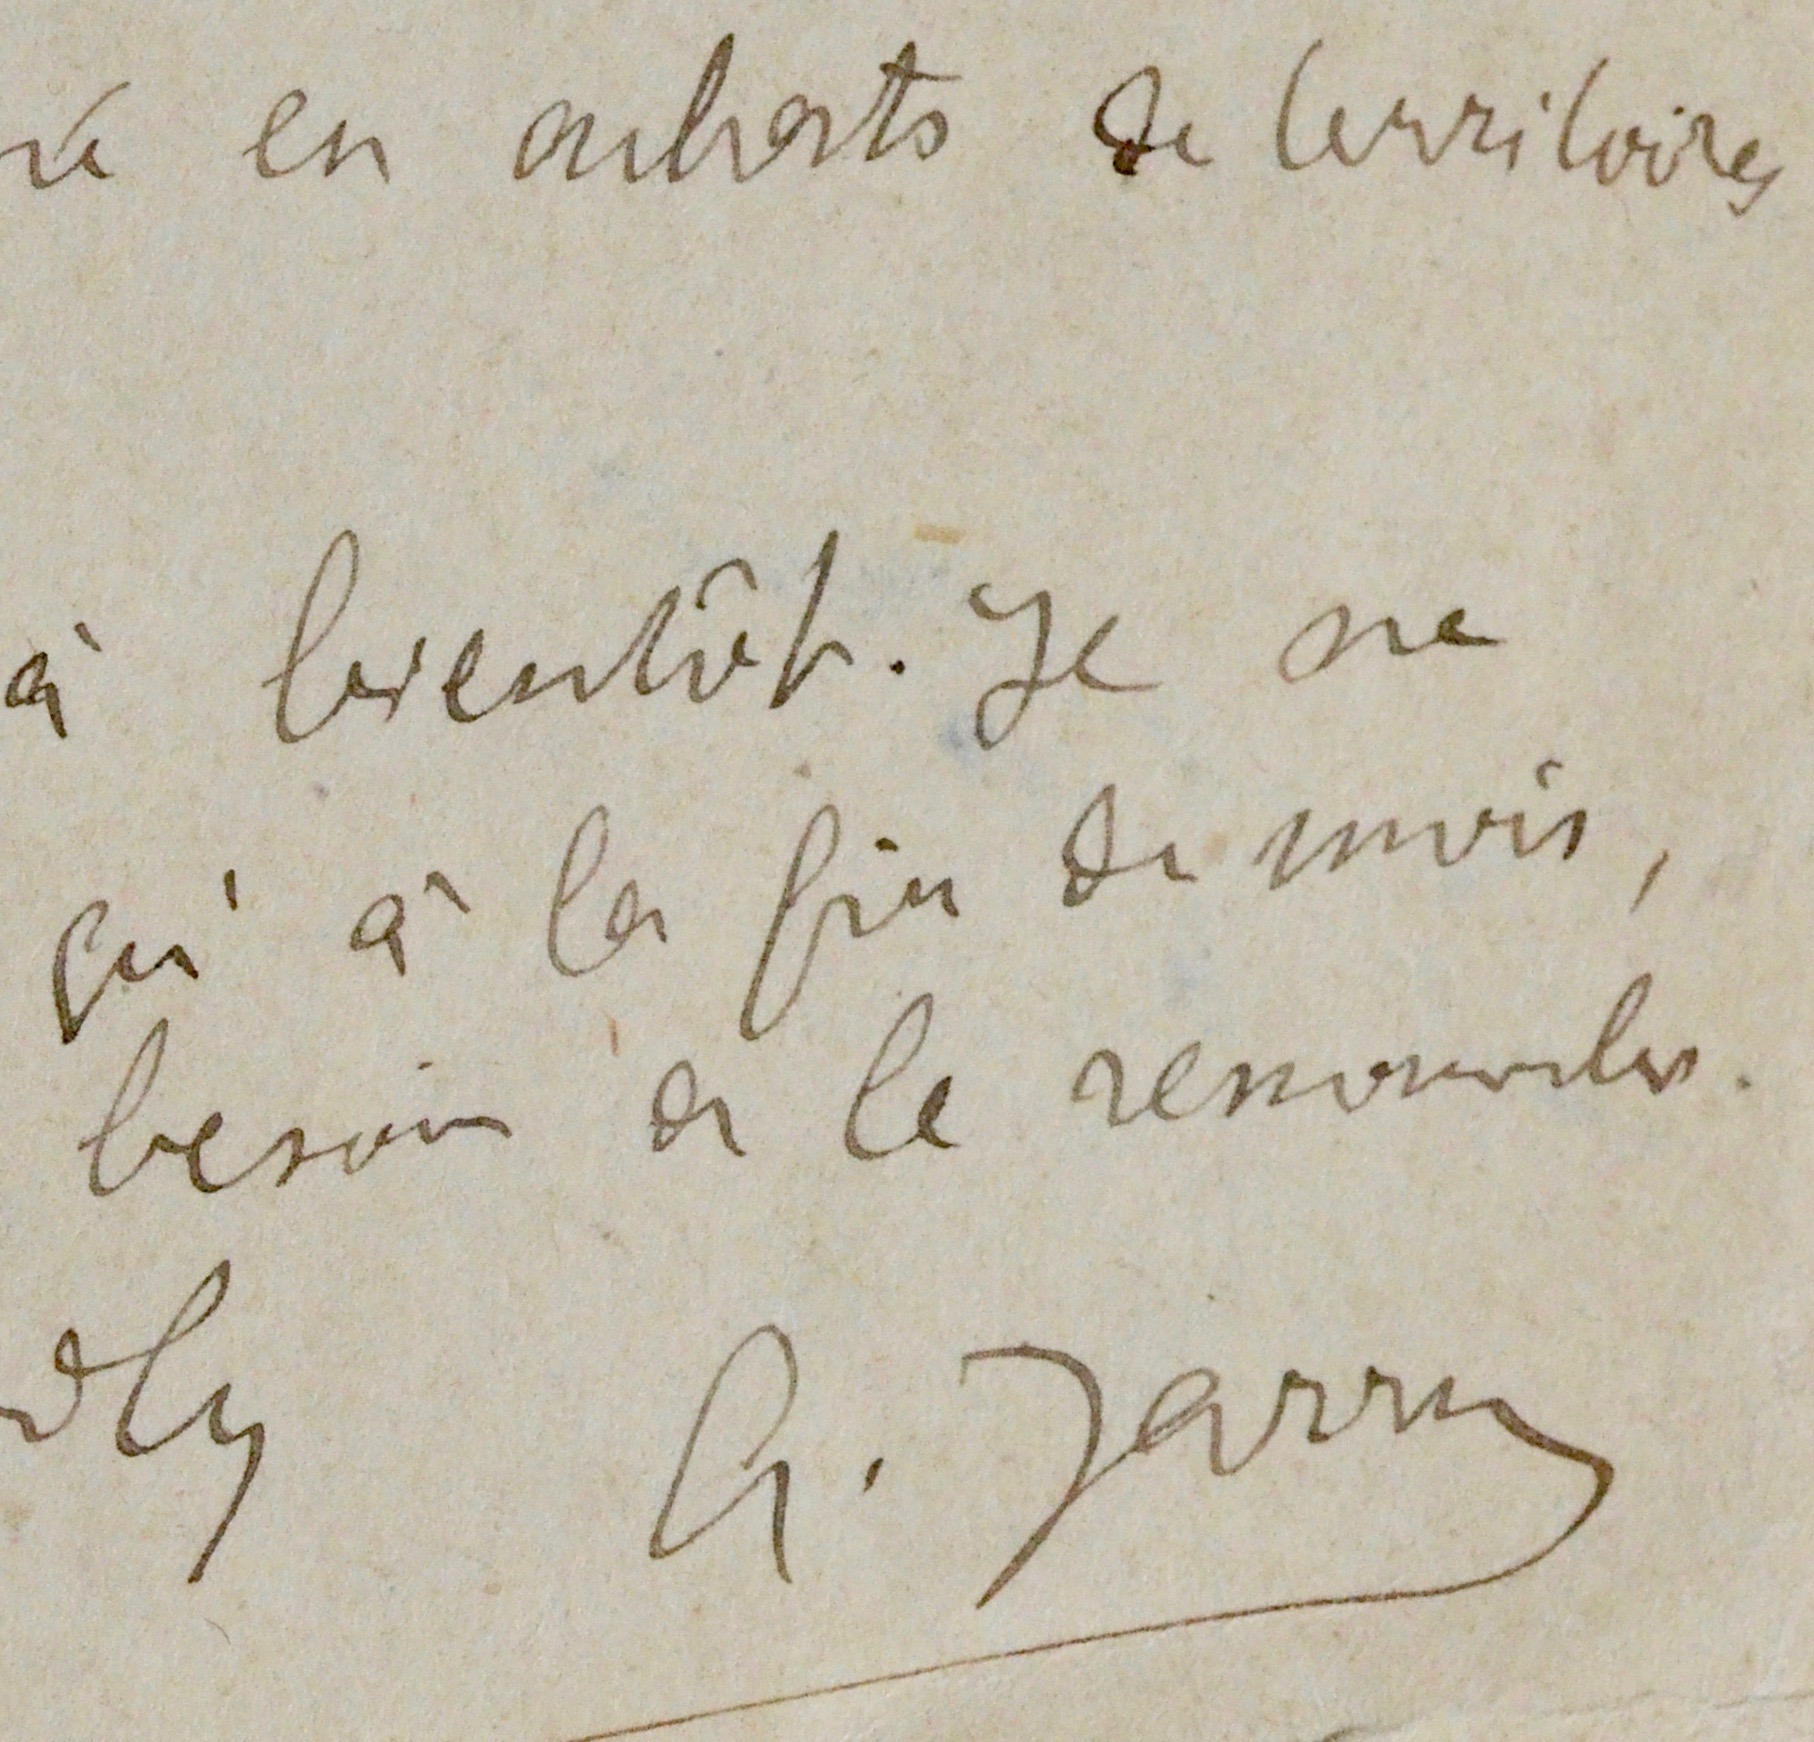 né en achats de territoires
à bientôt. Je ne
qu'à la fin du mois,
besoin de le renouveler.
dly A. Jarry